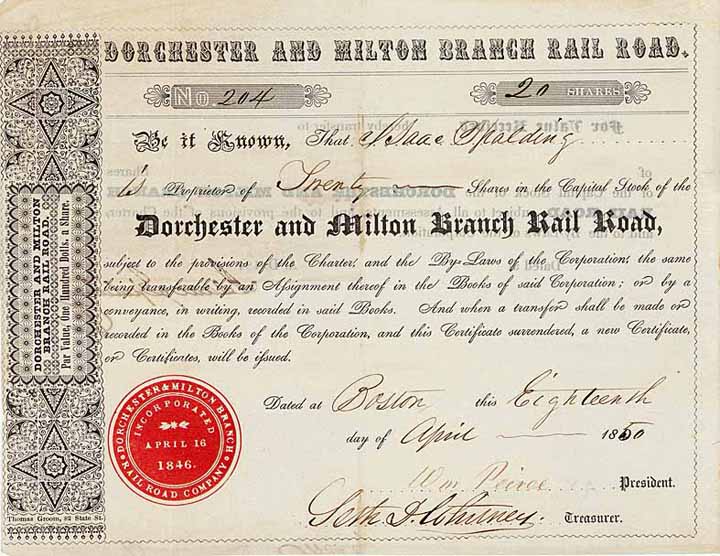 DORCHESTER AND MILTON BRANCH RAIL ROAD.
No. 204
20 SHARES
Be it Known, That Isaac Spalding
is Proprietor of Twenty Shares in the Capital Stock of the
Dorchester and Milton Branch Rail Road,
subject to the provisions of the Charter, and the By-Laws of the Corporation; the same
being transferable by an Assignment thereof in the Books of said Corporation; or by a
conveyance, in writing, recorded in said Books. And when a transfer shall be made or
recorded in the Books of the Corporation, and this Certificate surrendered, a new Certificate,
or Certificates, will be issued.
Dated at Boston this Eighteenth
day of April 1850
Wm Peirce President.
Seth D. Whitney. Treasurer.
DORCHESTER & MILTON BRANCH
RAIL ROAD COMPANY
INCORPORATED
APRIL 16
1846.
DORCHESTER AND MILTON
BRANCH RAILROAD.
Par Value, One Hundred Dolls. a Share.
Thomas Groom, 82 State St.